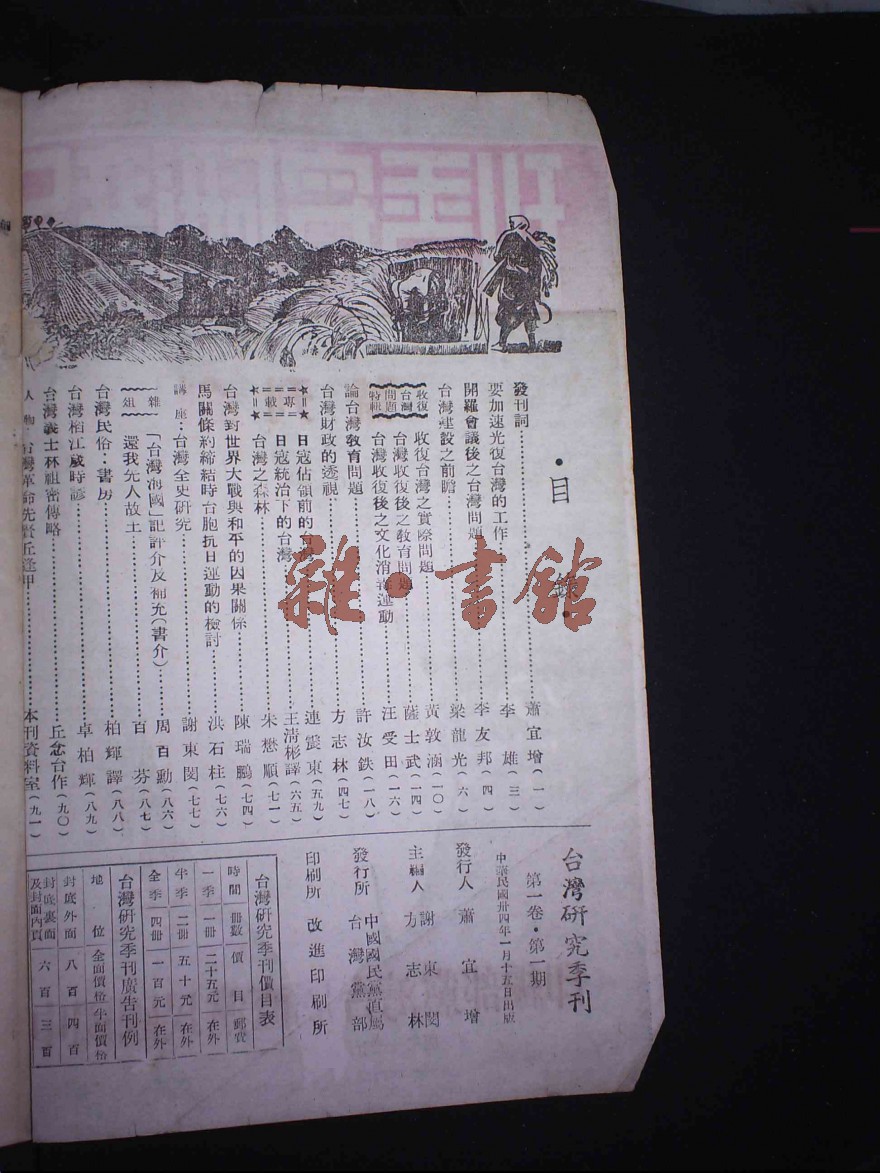 目錄
發刊詞…………蕭宜增(一)
要加速光復台灣的工作…………李雄(三)
開羅會議後之台灣問題…………李友邦(四)
台灣建設之前瞻…………梁龍光(六)
收復台灣問題特輯
收復台灣之實際問題…………黃敦涵(一〇)
台灣收復後之教育問題…………薩士武(一四)
台灣收復後之文化消毒運動…………汪受田(一六)
論台灣教育問題…………許汝鉄(一八)
台灣財政的透視…………方志林(四七)
專載
日寇佔領前的台灣…………連震東(五九)
日寇統治下的台灣…………王清彬譯(六五)
台灣之森林…………朱懋順(七一)
台灣對世界大戰與和平的因果關係…………陳瑞鵬(七四)
馬關條約締結時台胞抗日運動的檢討…………洪石柱(七六)
講座:台灣全史研究…………謝東閔(七七)
雜俎
「台灣海國」記評介及補充(書介)…………周百勳(八六)
還我先人故土…………百芬(八七)
台灣民俗:書房…………柏輝譯(八八)
台灣稻江歲時諺…………卓柏輝(八九)
台灣義士林祖密傳略…………丘念台作(九〇)
人物:台灣革命先賢丘逢甲…………本刊資料室(九一)
台灣研究季刊
第一卷·第一期
中華民國卅四年一月十五日出版
發行人 蕭宜增
主編人 謝東閔 方志林
發行所 中國國民黨直屬台灣黨部
印刷所 改進印刷所
台灣研究季刊價目表
時間 冊數 價目 郵費
一季 一冊 二十五元 在外
半季 二冊 五十元 在外
全季 四冊 一百元 在外
台灣研究季刊廣告刊例
地位 全面價格 半面價格
封底外面 八百 四百
封底裏面及封面內頁 六百 三百
雜·書館